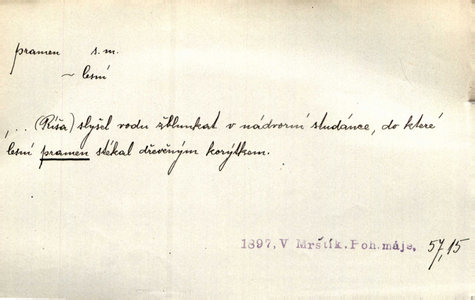 pramen s. m.
~ lesní
,... (Ríša) slyšel vodu žblunkat v nádvorní studánce, do které
lesní pramen stékal dřevěným korýtkem.
1897, V Mrštík. Poh. máje, 57,15